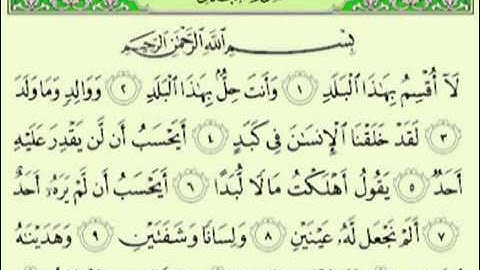 بِسْمِ اللَّهِ الرَّحْمَٰنِ الرَّحِيمِ
لَآ أُقْسِمُ بِهَٰذَا ٱلْبَلَدِ ١ وَأَنتَ حِلٌّۢ بِهَٰذَا ٱلْبَلَدِ ٢ وَوَالِدٍ وَمَا وَلَدَ
٣ لَقَدْ خَلَقْنَا ٱلْإِنسَٰنَ فِى كَبَدٍ ٤ أَيَحْسَبُ أَن لَّن يَقْدِرَ عَلَيْهِ
أَحَدٌ ٥ يَقُولُ أَهْلَكْتُ مَالًا لُّبَدًا ٦ أَيَحْسَبُ أَن لَّمْ يَرَهُۥٓ أَحَدٌ
٧ أَلَمْ نَجْعَل لَّهُۥ عَيْنَيْنِ ٨ وَلِسَانًا وَشَفَتَيْنِ ٩ وَهَدَيْنَٰهُ